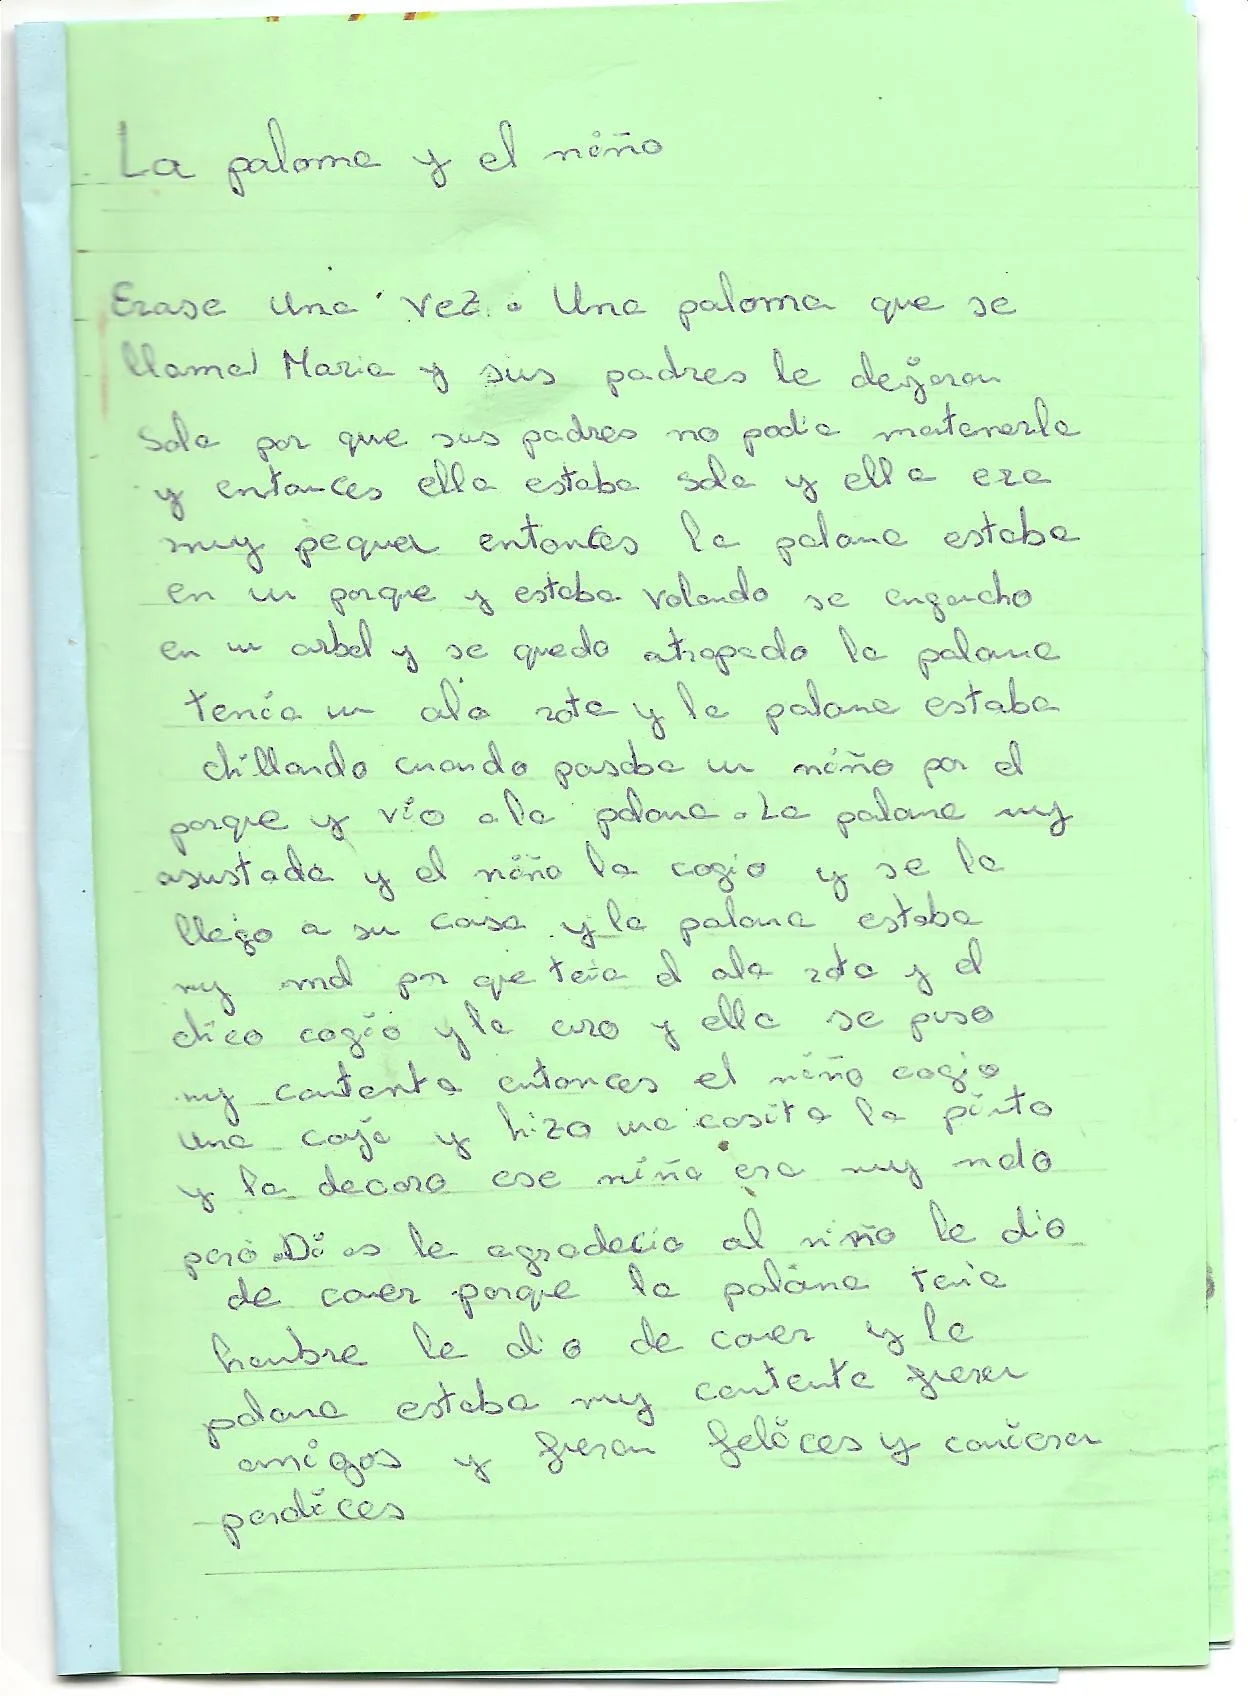 La paloma y el niño
Erase una vez. Una paloma que se
llama Maria y sus padres le dejaron
sola por que sus padres no podia matenerla
y entonces ella estaba sola y ella era
muy pequeñ entonces la paloma estaba
en un parque y estaba volando se engancho
en un arbol y se quedo atrapado la paloma
tenia un ala rota y la paloma estaba
chillando cuando pasaba un niño por el
parque y vio a la paloma. La paloma muy
asustada y el niño la cogio y se la
llego a su casa y la paloma estaba
muy mal por que teia el ala rota y el
chico cogio y la curo y ella se puso
muy contenta entonces el niño cogio
una caja y hizo una casita la pinto
y la decoro ese niño era muy malo
pero Dios le agradecio al niño le dio
de comer porque la paloma tenia
hambre le dio de comer y la
paloma estaba muy contenta fueron
amigos y fueron felices y comieron
perdices